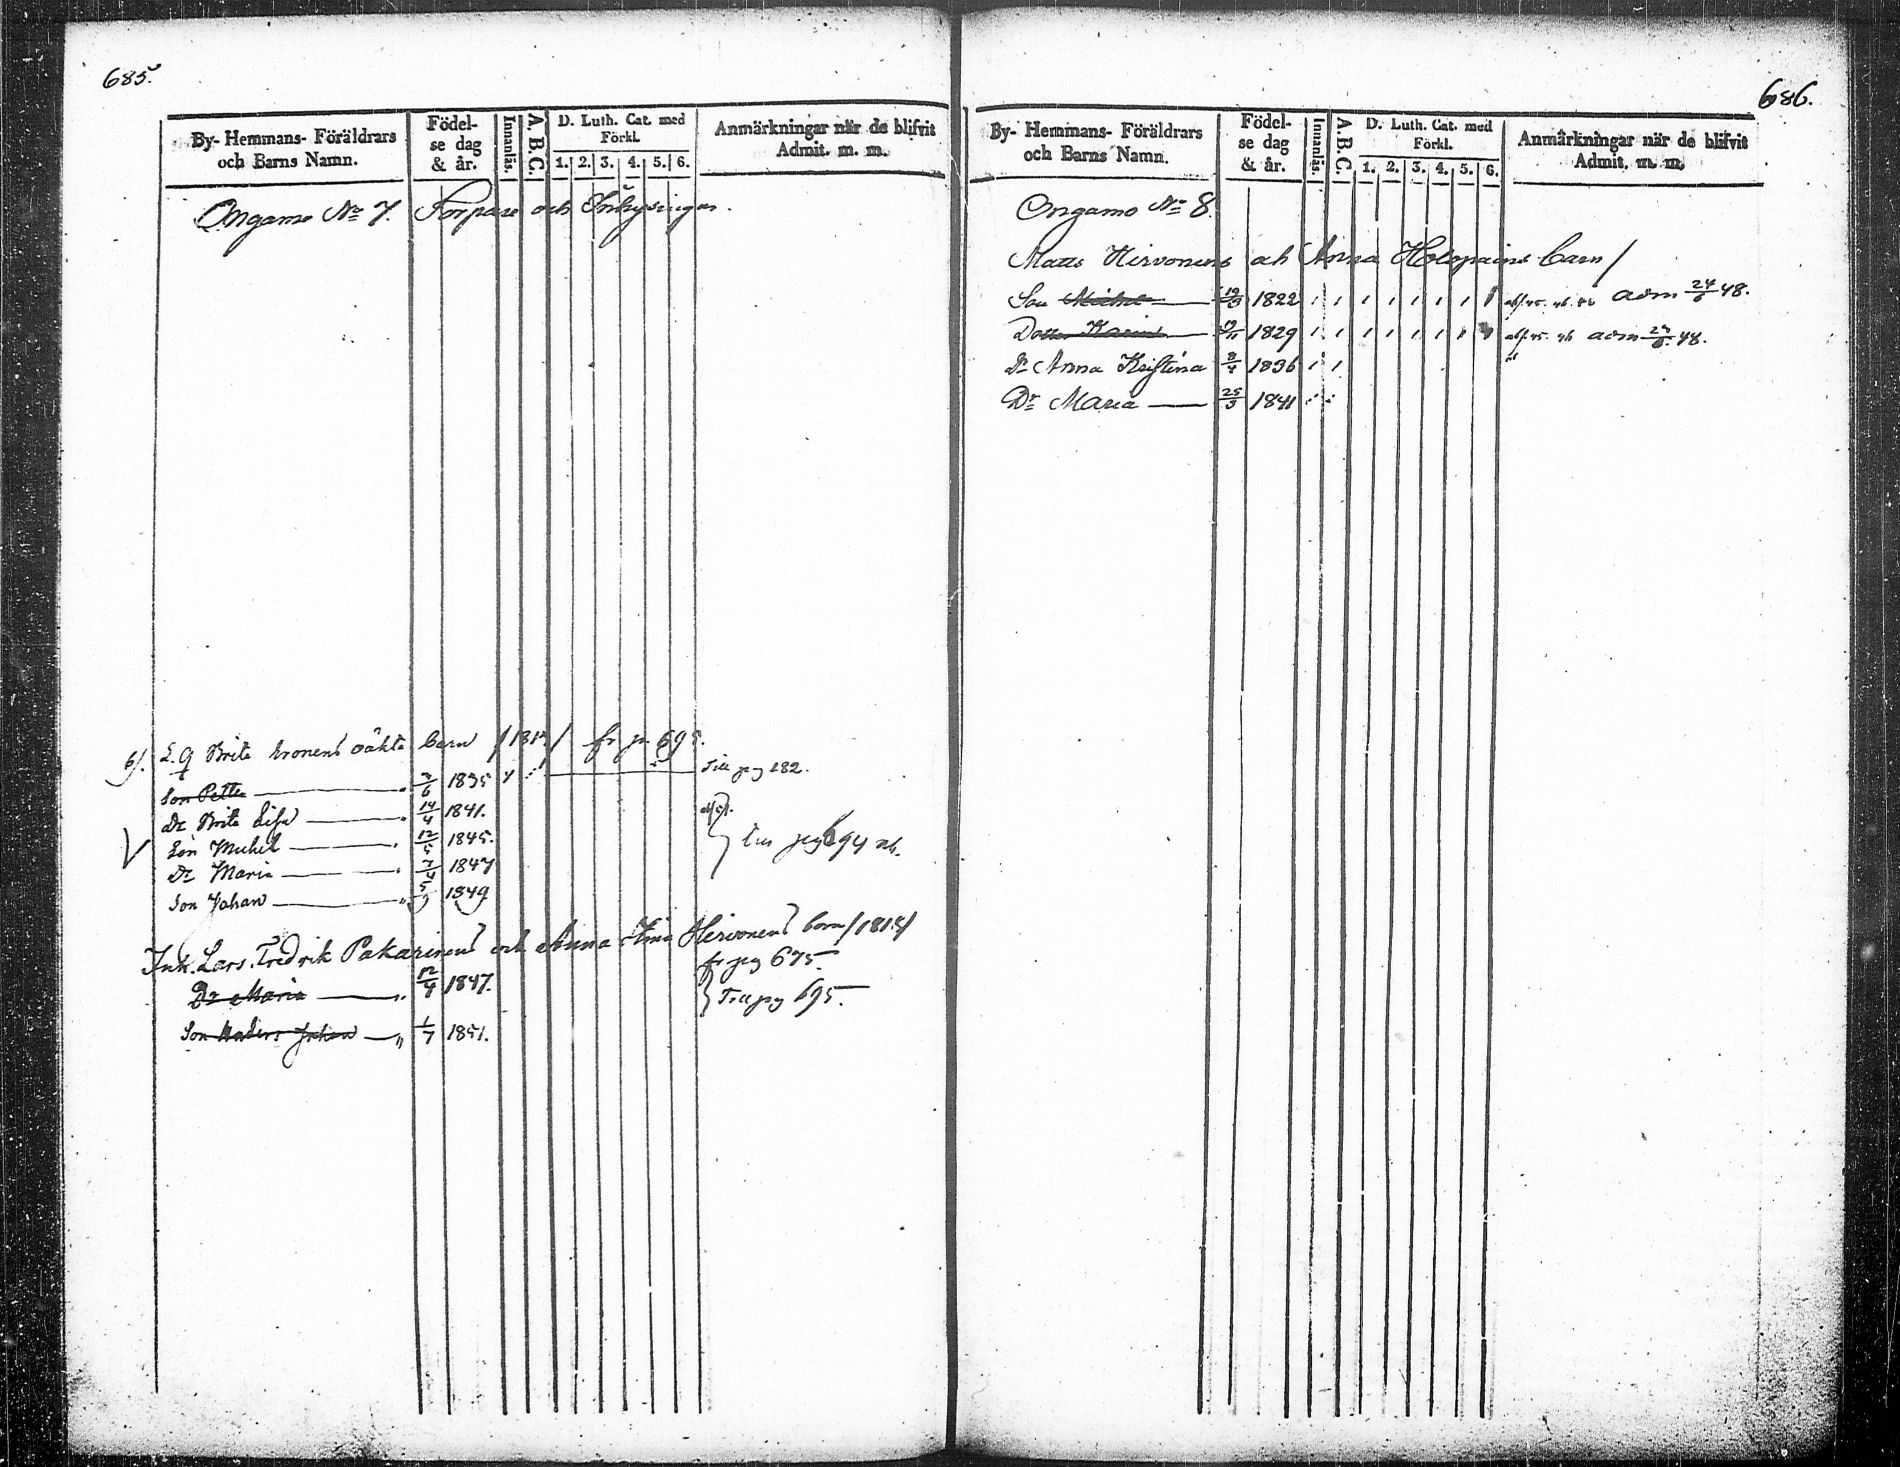 685.
By- Hemmans- Föräldrars och Barns Namn.
Födel- se dag & år.
Innanläs.
A. B. C.
D. Luth. Cat. med Förkl.
1. 2. 3. 4. 5. 6.
Anmärkningar när de blifvit Admit. m. m.
Ongamo No 7. Torpare och Inhysingar.
6). L. Q Brita oäkta barn fr pg 695.
Son Petter 7/6 1835 Till pag 282.
Dr Brita Lisa 14/4 1841.
Son Michel 12/5 1845. pag 694
Dr Maria 7/4 1847
Son Johan 5/9 1849
Inh. Lars Fredrik Pakarinens och Anna Hirvonens barn
fr pag 675.
Dr Maria 12/4 1847. Till pag 695.
Son Anders Johan 1/7 1851.
686.
By- Hemmans- Föräldrars och Barns Namn.
Födel- se dag & år.
Innanläs.
A. B. C.
D. Luth. Cat. med Förkl.
1. 2. 3. 4. 5. 6.
Anmärkningar när de blifvit Admit. m. m.
Ongamo No 8.
Matts Hirvonens och Anna Holopains barn/
Son Michel 1822 adm 24/6 48.
Dotter Karin 1829 adm 24/6 48.
Dr Anna Kristina 3/4 1836
Dr Maria 25/3 1841